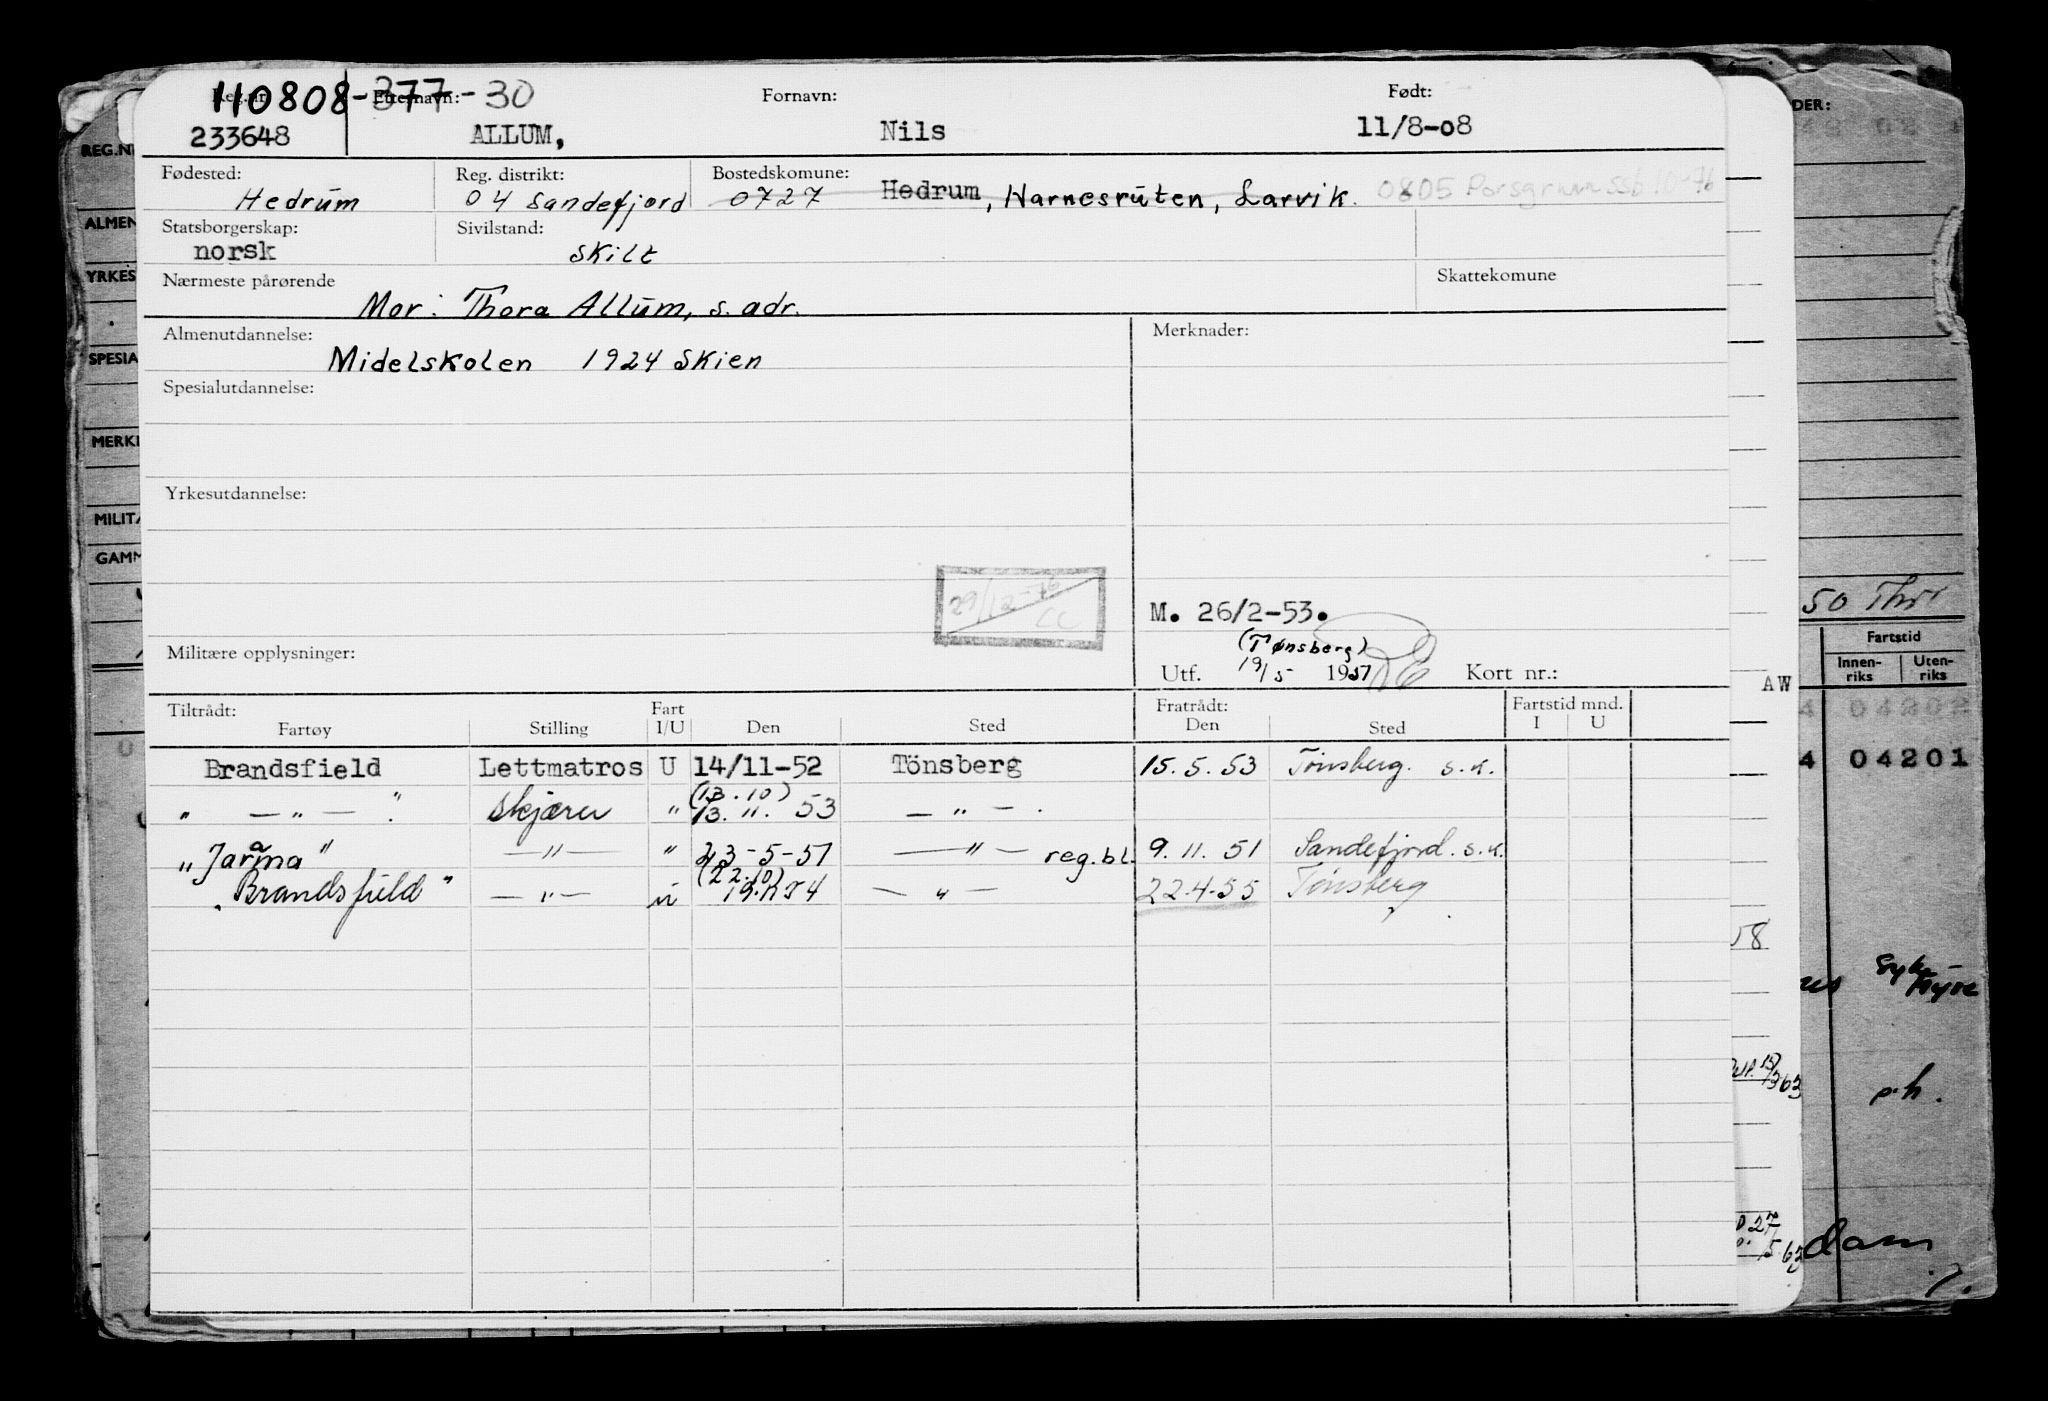 110808-377-30
Reg.nr. Etternavn: Fornavn: Født:
233648 ALLUM, Nils 11/8-08
Fødested: Reg. distrikt: Bostedskomune:
Hedrum 04 Sandefjord 0727 Hedrum, Harnesruten, Larvik. 0805 Porsgrunn SSb 10-76
Statsborgerskap: Sivilstand:
norsk skilt
Nærmeste pårørende Skattekomune
Mor: Thora Allum, s. adr.
Almenutdannelse: Merknader:
Midelskolen 1924 Skien
Spesialutdannelse:
Yrkesutdannelse:
29/12-76
CC
M. 26/2-53.
(Tønsberg)
Militære opplysninger: Utf. 19/5 1951 Kort nr.:
Tiltrådt: Fart Fratrådt: Fartstid mnd.
Fartøy Stilling I/U Den Sted Den Sted I U
Brandsfield Lettmatros U 14/11-52 Tönsberg 15.5.53 Tönsberg. s.k.
(13.10)
" — " — " Skjærer " 13.11.53 — " — .
"Jarama" — " — " 23-5-51 — " — reg.bl. 9.11.51 Sandefjord. s.k.
(22.10)
"Brandsfield" — " — u 19.11.54 — " — 22.4.55 Tönsberg
REG.N
ALMEN
YRKES
SPESIA
MERK
MILIT
GAMM
DER:
50
Fartstid
Innen-riks Uten-riks
AW
04202
4 04201
58
p.h.
dam